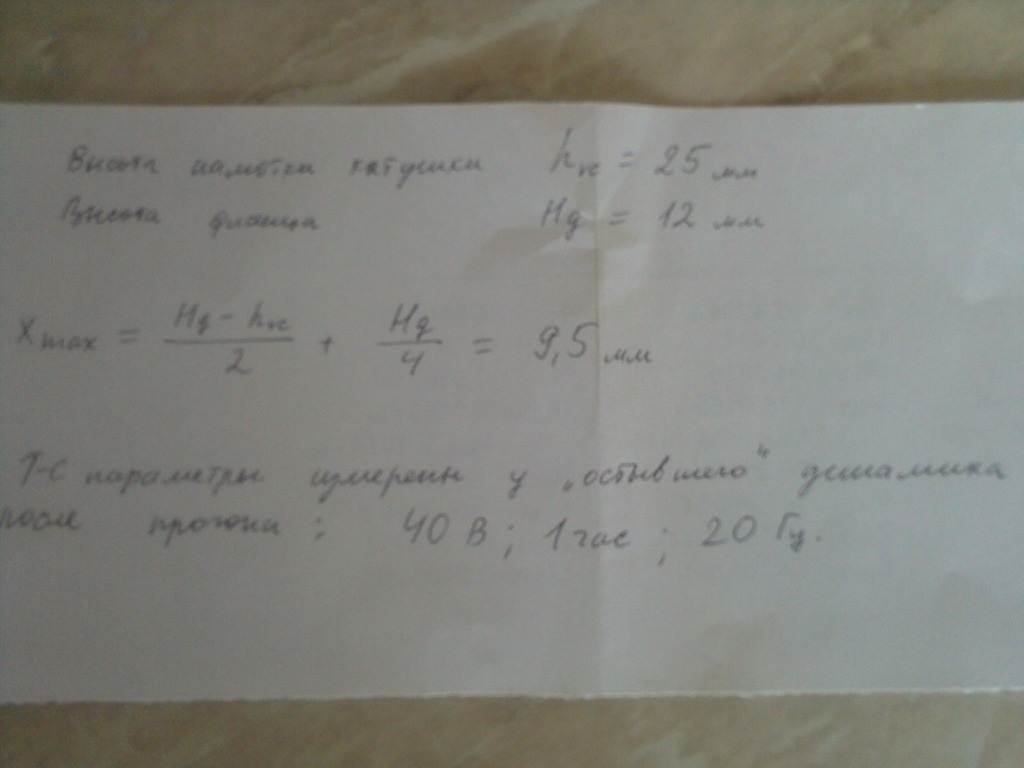 Высота намотки катушки h_vc = 25 мм
Высота фланца Hg = 12 мм
X_max = (Hg - h_vc)/2 + Hg/4 = 9,5 мм
Т-С параметры измерены у „остывшего“ динамика
после прогона : 40 В ; 1 час ; 20 Гц.